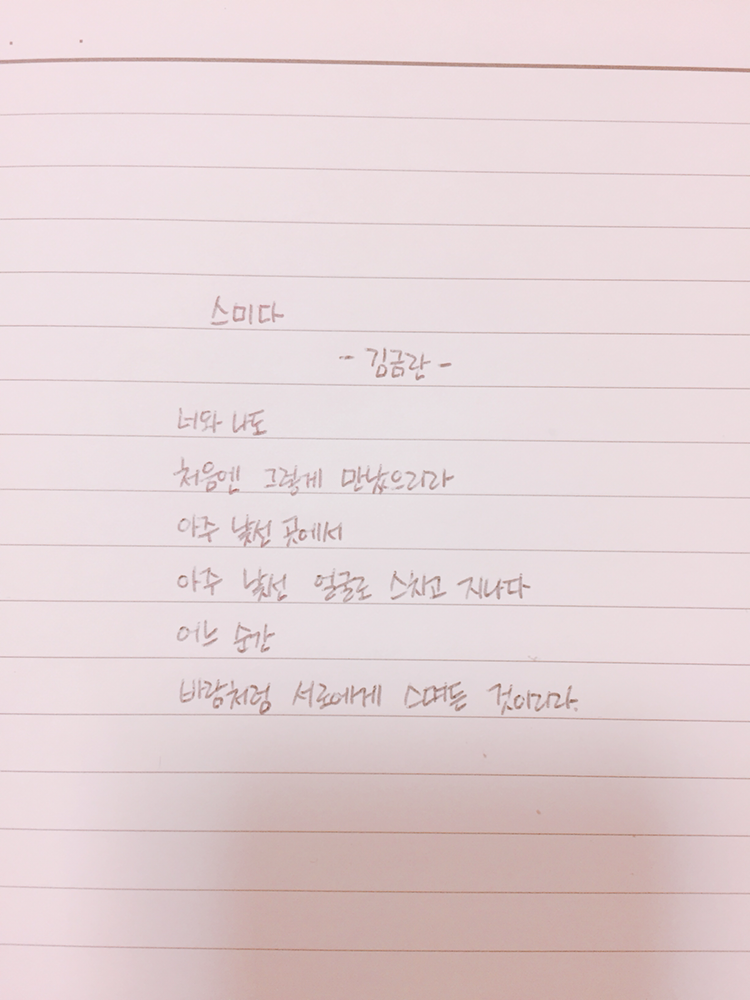 스미다
- 김금란 -
너와 나도
처음엔 그렇게 만났으리라
아주 낯선 곳에서
아주 낯선 얼굴로 스치고 지나다
어느 순간
바람처럼 서로에게 스며든 것이리라.